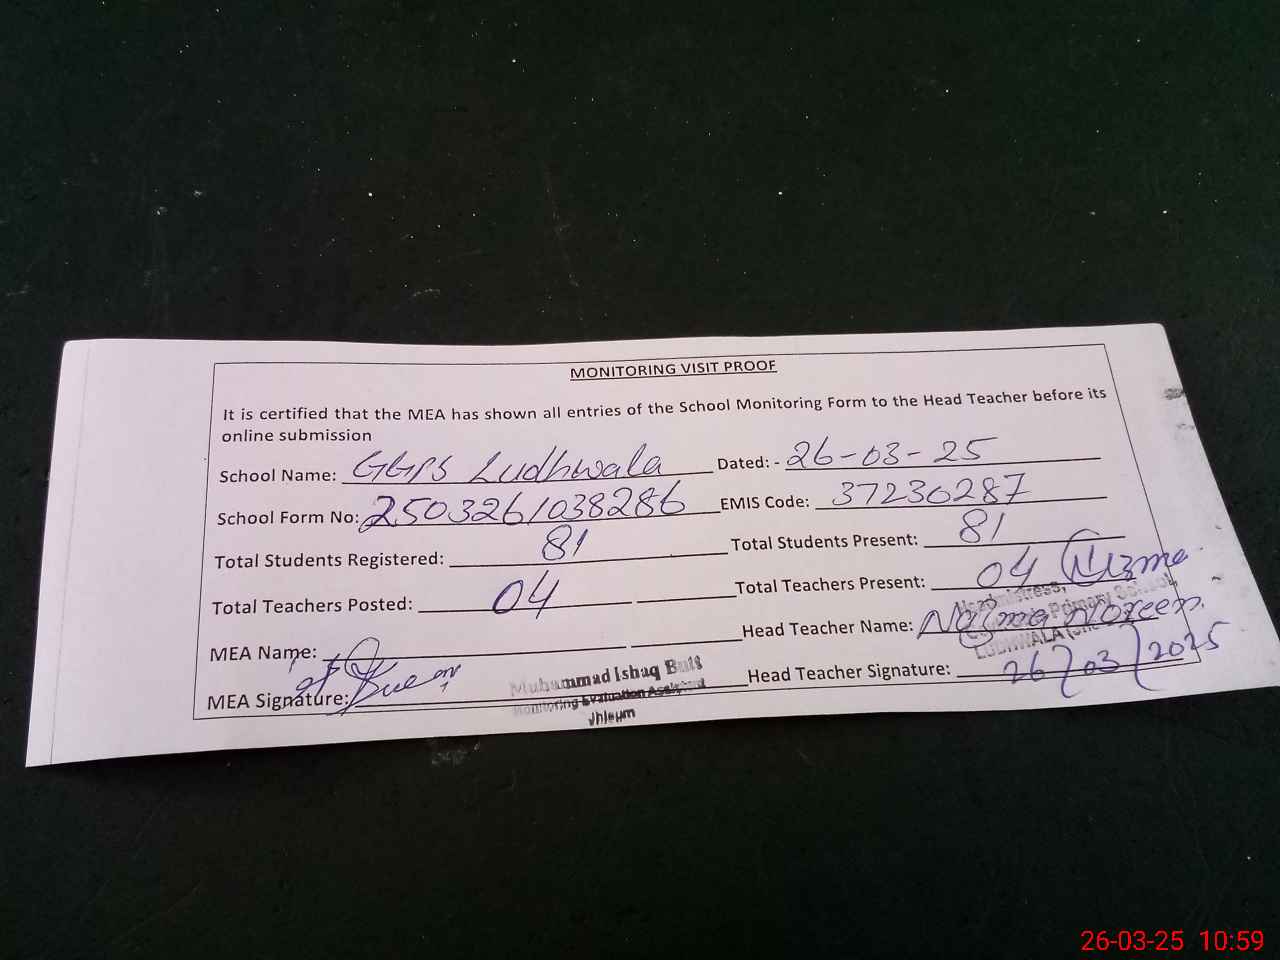 MONITORING VISIT PROOF
It is certified that the MEA has shown all entries of the School Monitoring Form to the Head Teacher before its
online submission
School Name: GGPS Ludhwala Dated: - 26-03-25
School Form No: 2503261038286 EMIS Code: 37230287
Total Students Registered: 81 Total Students Present: 81
Total Teachers Posted: 04 Total Teachers Present: 04
MEA Name: Head Teacher Name: Najma Noreen
Headmistress,
Primary School,
LUDHWALA
MEA Signature: Head Teacher Signature: 26/03/2025
Muhammad Ishaq Butt
Monitoring Evaluation Assistant
Jhleum
26-03-25 10:59